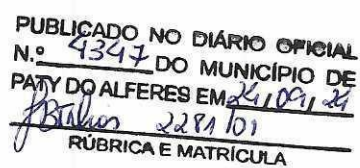 PUBLICADO NO DIÁRIO OFICIAL
N.º 4347 DO MUNICÍPIO DE
PATY DO ALFERES EM 24/09/24
2281/01
RÚBRICA E MATRÍCULA